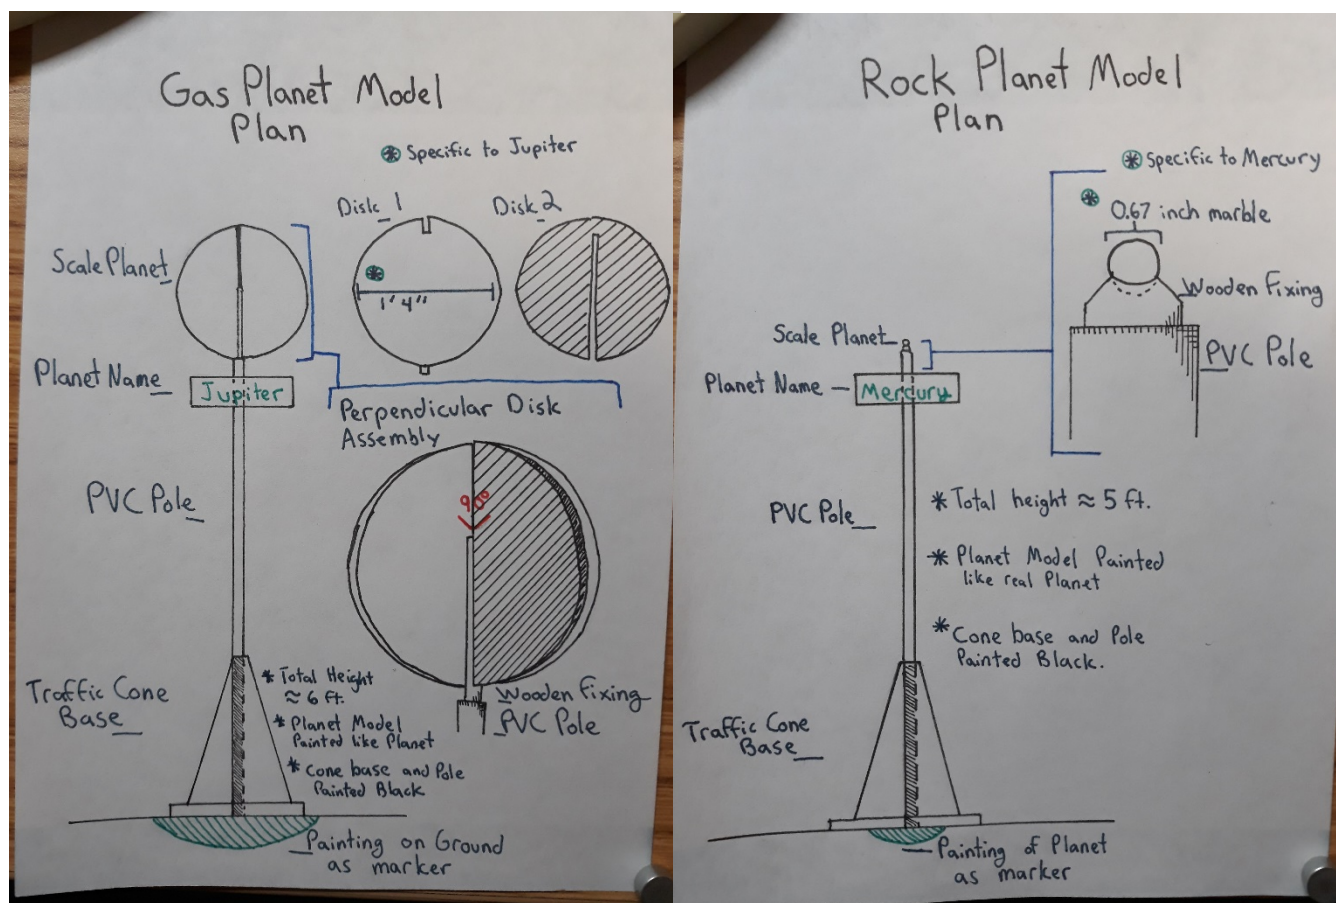 Gas Planet Model
Plan
Specific to Jupiter
Disk 1
Disk 2
Scale Planet
1' 4"
Planet Name
Jupiter
Perpendicular Disk
Assembly
90°
PVC Pole
Traffic Cone
Base
* Total Height
≈ 6 ft.
* Planet Model
Painted like Planet
* Cone base and Pole
Painted Black
Wooden Fixing
PVC Pole
Painting on Ground
as marker
Rock Planet Model
Plan
Specific to Mercury
0.67 inch marble
Wooden Fixing
PVC Pole
Scale Planet
Planet Name
Mercury
PVC Pole
* Total height ≈ 5 ft.
* Planet Model Painted
like real Planet
* Cone base and Pole
Painted Black.
Traffic Cone
Base
Painting of Planet
as marker